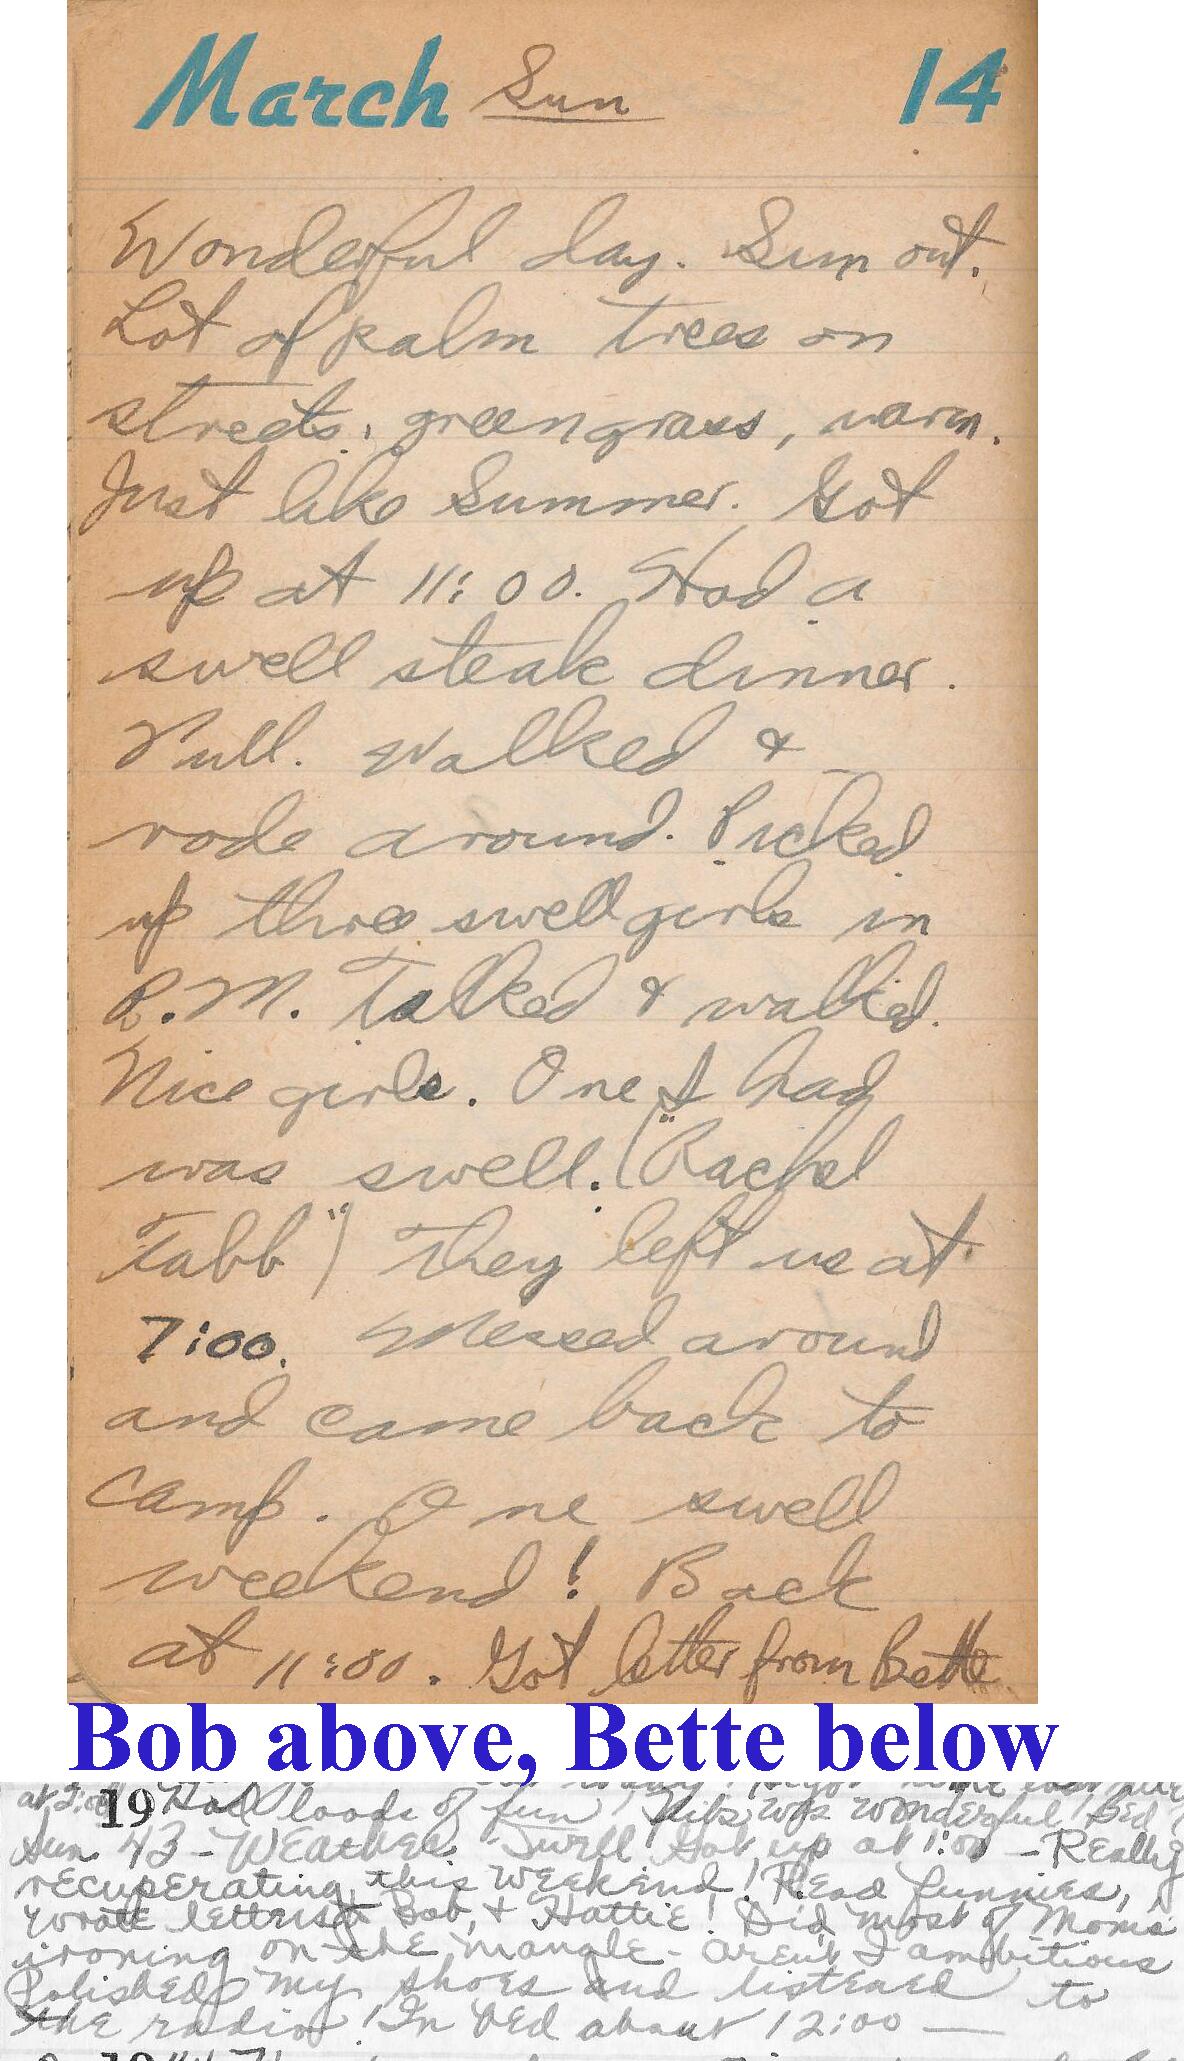 March Sun 14
Wonderful day. Sun out.
Lot of palm trees on
streets, green grass, warm.
Just like Summer. Got
up at 11:00. Had a
swell steak dinner.
Full. Walked &
rode around. Picked
up three swell girls in
P.M. Talked & walked.
Nice girls. One I had
was swell. ("Rachel
Tabb") They left us at
7:00. Messed around
and came back to
camp. One swell
weekend! Back
at 11:00. Got letter from Bette
Bob above, Bette below
19 Had loads of fun! was wonderful! Bed
at 2:00
Sun 43 - Weather Swell Got up at 1:00 - Really
recuperating this weekend! Read funnies,
wrote letters to Bob, & Hattie! Did most of Mom's
ironing on the mangle - aren't I ambitious
Polished my shoes and listened to
the radio! In bed about 12:00 —